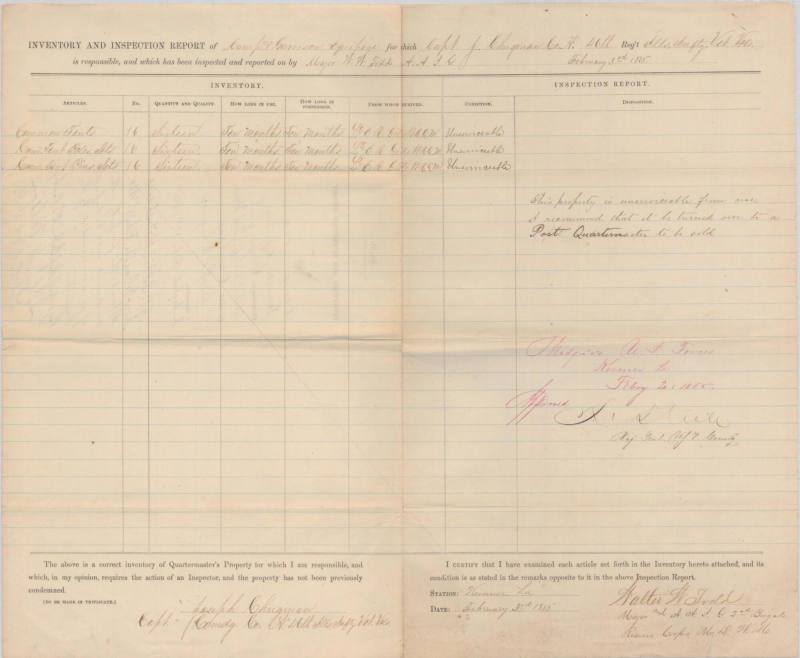 INVENTORY AND INSPECTION REPORT of Camp & Garrison Equipage for which Capt J. Clingman Co. A. 46th Reg't Ills. Infty Vol. Vet.
is responsible, and which has been inspected and reported on by Major W. W. Todd A. A. I. G. February 3rd 1865
INVENTORY. INSPECTION REPORT.
ARTICLES. NO. QUANTITY AND QUALITY. HOW LONG IN USE. HOW LONG IN POSSESSION. FROM WHOM RECEIVED. CONDITION. DISPOSITION.
Common Tents 16 Sixteen Ten Months Ten Months Unserviceable
Com Tent Poles Sets 16 Sixteen Ten Months Ten Months Unserviceable
Com Tent Pins Sets 16 Sixteen Ten Months Ten Months Unserviceable
This property is unserviceable from use
I recommend that it be turned over to a
Post Quartermaster to be sold
Headqrs U. S. Forces
Kenner La
Feby 1865.
Approved
Maj. Genl.
The above is a correct inventory of Quartermaster's Property for which I am responsible, and
which, in my opinion, requires the action of an Inspector, and the property has not been previously
condemned.
[TO BE MADE IN TRIPLICATE.]
Joseph Clingman
Capt Comdg Co. A 46th Ills Infty Vol. Vet.
I CERTIFY that I have examined each article set forth in the Inventory hereto attached, and its
condition is as stated in the remarks opposite to it in the above Inspection Report.
STATION: Kenner La
DATE: February 3rd 1865
Walter W Todd
Major and A. A. I. G. 2nd Brigade